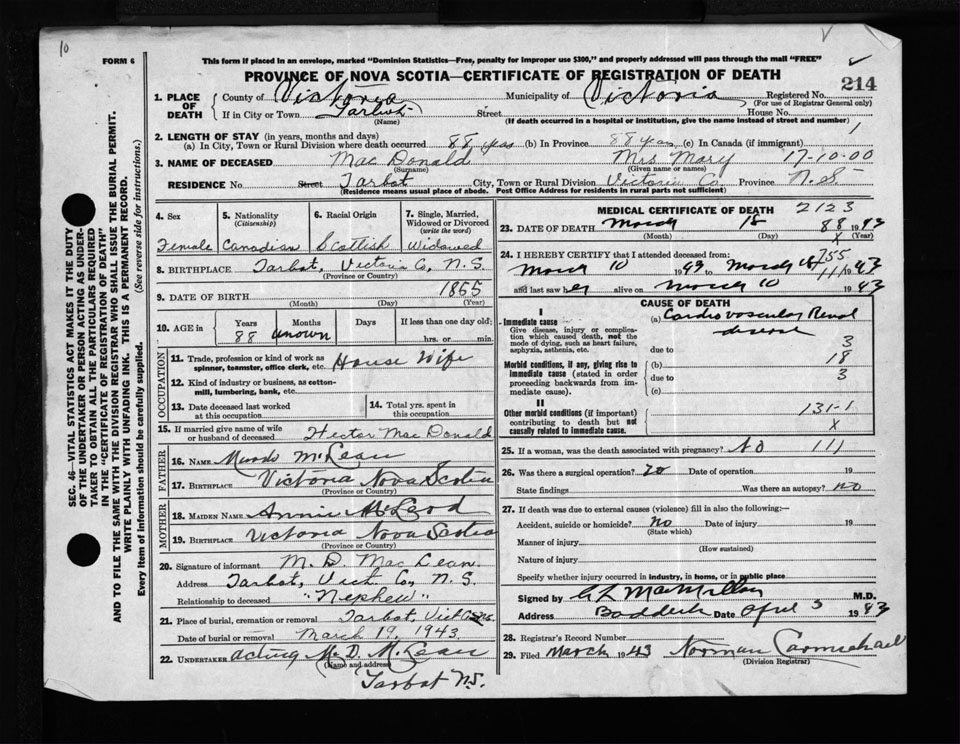 10
FORM 6
This form if placed in an envelope, marked "Dominion Statistics—Free, penalty for improper use $300," and properly addressed will pass through the mail "FREE"
PROVINCE OF NOVA SCOTIA—CERTIFICATE OF REGISTRATION OF DEATH
214
SEC. 46—VITAL STATISTICS ACT MAKES IT THE DUTY
OF THE UNDERTAKER OR PERSON ACTING AS UNDER-
TAKER TO OBTAIN ALL THE PARTICULARS REQUIRED
IN THE "CERTIFICATE OF REGISTRATION OF DEATH"
AND TO FILE THE SAME WITH THE DIVISION REGISTRAR WHO SHALL ISSUE THE BURIAL PERMIT.
WRITE PLAINLY WITH UNFADING INK. THIS IS A PERMANENT RECORD.
Every item of information should be carefully supplied. (See reverse side for instructions.)
1. PLACE OF DEATH
County of Victoria Municipality of Victoria Registered No.
(For use of Registrar General only)
If in City or Town Tarbot Street House No.
(Name) (If death occurred in a hospital or institution, give the name instead of street and number)
2. LENGTH OF STAY (in years, months and days)
(a) In City, Town or Rural Division where death occurred 88 yrs (b) In Province 88 yrs (c) In Canada (if immigrant)
1
3. NAME OF DECEASED Mac Donald Mrs Mary 17-10-00
(Surname) (Given name or names)
RESIDENCE No. Street Tarbot City, Town or Rural Division Victoria Co, Province N.S.
(Residence means usual place of abode. Post Office Address for residents in rural parts not sufficient)
4. Sex
Female
5. Nationality
(Citizenship)
Canadian
6. Racial Origin
Scottish
7. Single, Married,
Widowed or Divorced
(write the word)
Widowed
8. BIRTHPLACE Tarbot, Victoria Co, N.S.
(Province or Country)
9. DATE OF BIRTH 1855
(Month) (Day) (Year)
10. AGE in Years Months Days If less than one day old:
88 unown hrs. or min.
OCCUPATION
11. Trade, profession or kind of work as
spinner, teamster, office clerk, etc. House Wife
12. Kind of industry or business, as cotton-
mill, lumbering, bank, etc.
13. Date deceased last worked
at this occupation
14. Total yrs. spent in
this occupation
15. If married give name of wife
or husband of deceased Hector Mac Donald
FATHER
16. NAME Murdo McLean
17. BIRTHPLACE Victoria Nova Scotia
(Province or Country)
MOTHER
18. MAIDEN NAME Annie McLeod
19. BIRTHPLACE Victoria Nova Scotia
(Province or Country)
20. Signature of informant M. D. Mac Lean.
Address Tarbot, Vict. Co, N.S.
Relationship to deceased "Nephew"
21. Place of burial, cremation or removal Tarbot, Vict Co
Date of burial or removal March 19, 1943.
22. UNDERTAKER acting M. D. McLean
(Name and address)
Tarbot N.S.
MEDICAL CERTIFICATE OF DEATH 2123
23. DATE OF DEATH March 18 88 1943
(Month) (Day) X (Year)
24. I HEREBY CERTIFY that I attended deceased from: 755
March 10 1943 to March 1943
and last saw her alive on March 10 1943
CAUSE OF DEATH
I
Immediate cause
Give disease, injury or complica-
tion which caused death, not the
mode of dying, such as heart failure,
asphyxia, asthenia, etc.
(a) Cardio vascular Renal
disease
due to 3
Morbid conditions, if any, giving rise to
immediate cause (stated in order
proceeding backwards from im-
mediate cause).
(b) 18
due to 3
(c)
II
Other morbid conditions (if important)
contributing to death but not
causally related to immediate cause.
131-1
X
25. If a woman, was the death associated with pregnancy? No 111
26. Was there a surgical operation? no Date of operation 19
State findings Was there an autopsy? no
27. If death was due to external causes (violence) fill in also the following:—
Accident, suicide or homicide? no Date of injury 19
(State which)
Manner of injury
(How sustained)
Nature of injury
Specify whether injury occurred in industry, in home, or in public place
Signed by C L MacMillan M.D.
Address Baddeck Date April 3 1943
28. Registrar's Record Number
29. Filed March 1943 Norman Carmichael
(Division Registrar)